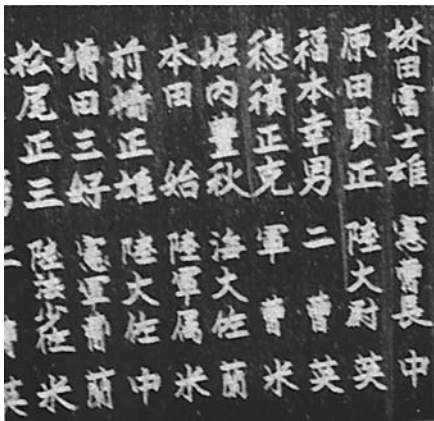 林田富士雄 憲曹長 中
原田賢正 陸大尉 英
福本幸男 二曹 英
穂積正克 軍曹 米
堀内豊秋 海大佐 蘭
本田 始 陸軍属 米
前橋正雄 陸大佐 中
増田三好 憲軍曹 蘭
松尾正三 陸法少佐 米